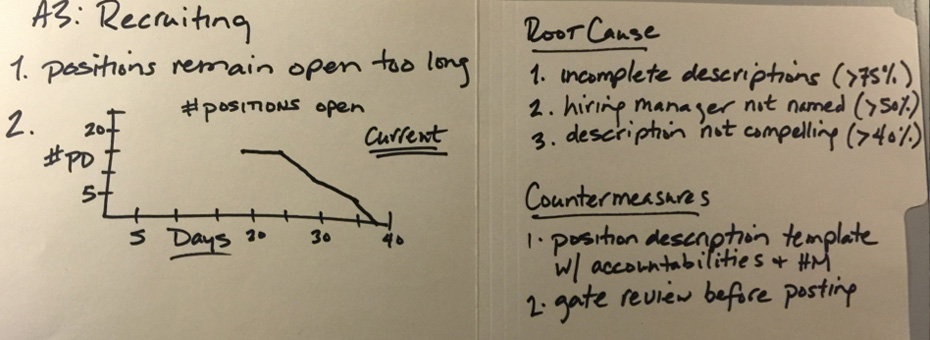 A3: Recruiting
1. positions remain open too long
2. #positions open
Current
20
#PO
5
5 Days 20 30 40
Root Cause
1. incomplete descriptions (>75%)
2. hiring manager not named (>50%)
3. description not compelling (>40%)
Countermeasures
1. position description template
w/ accountabilities + HM
2. gate review before posting